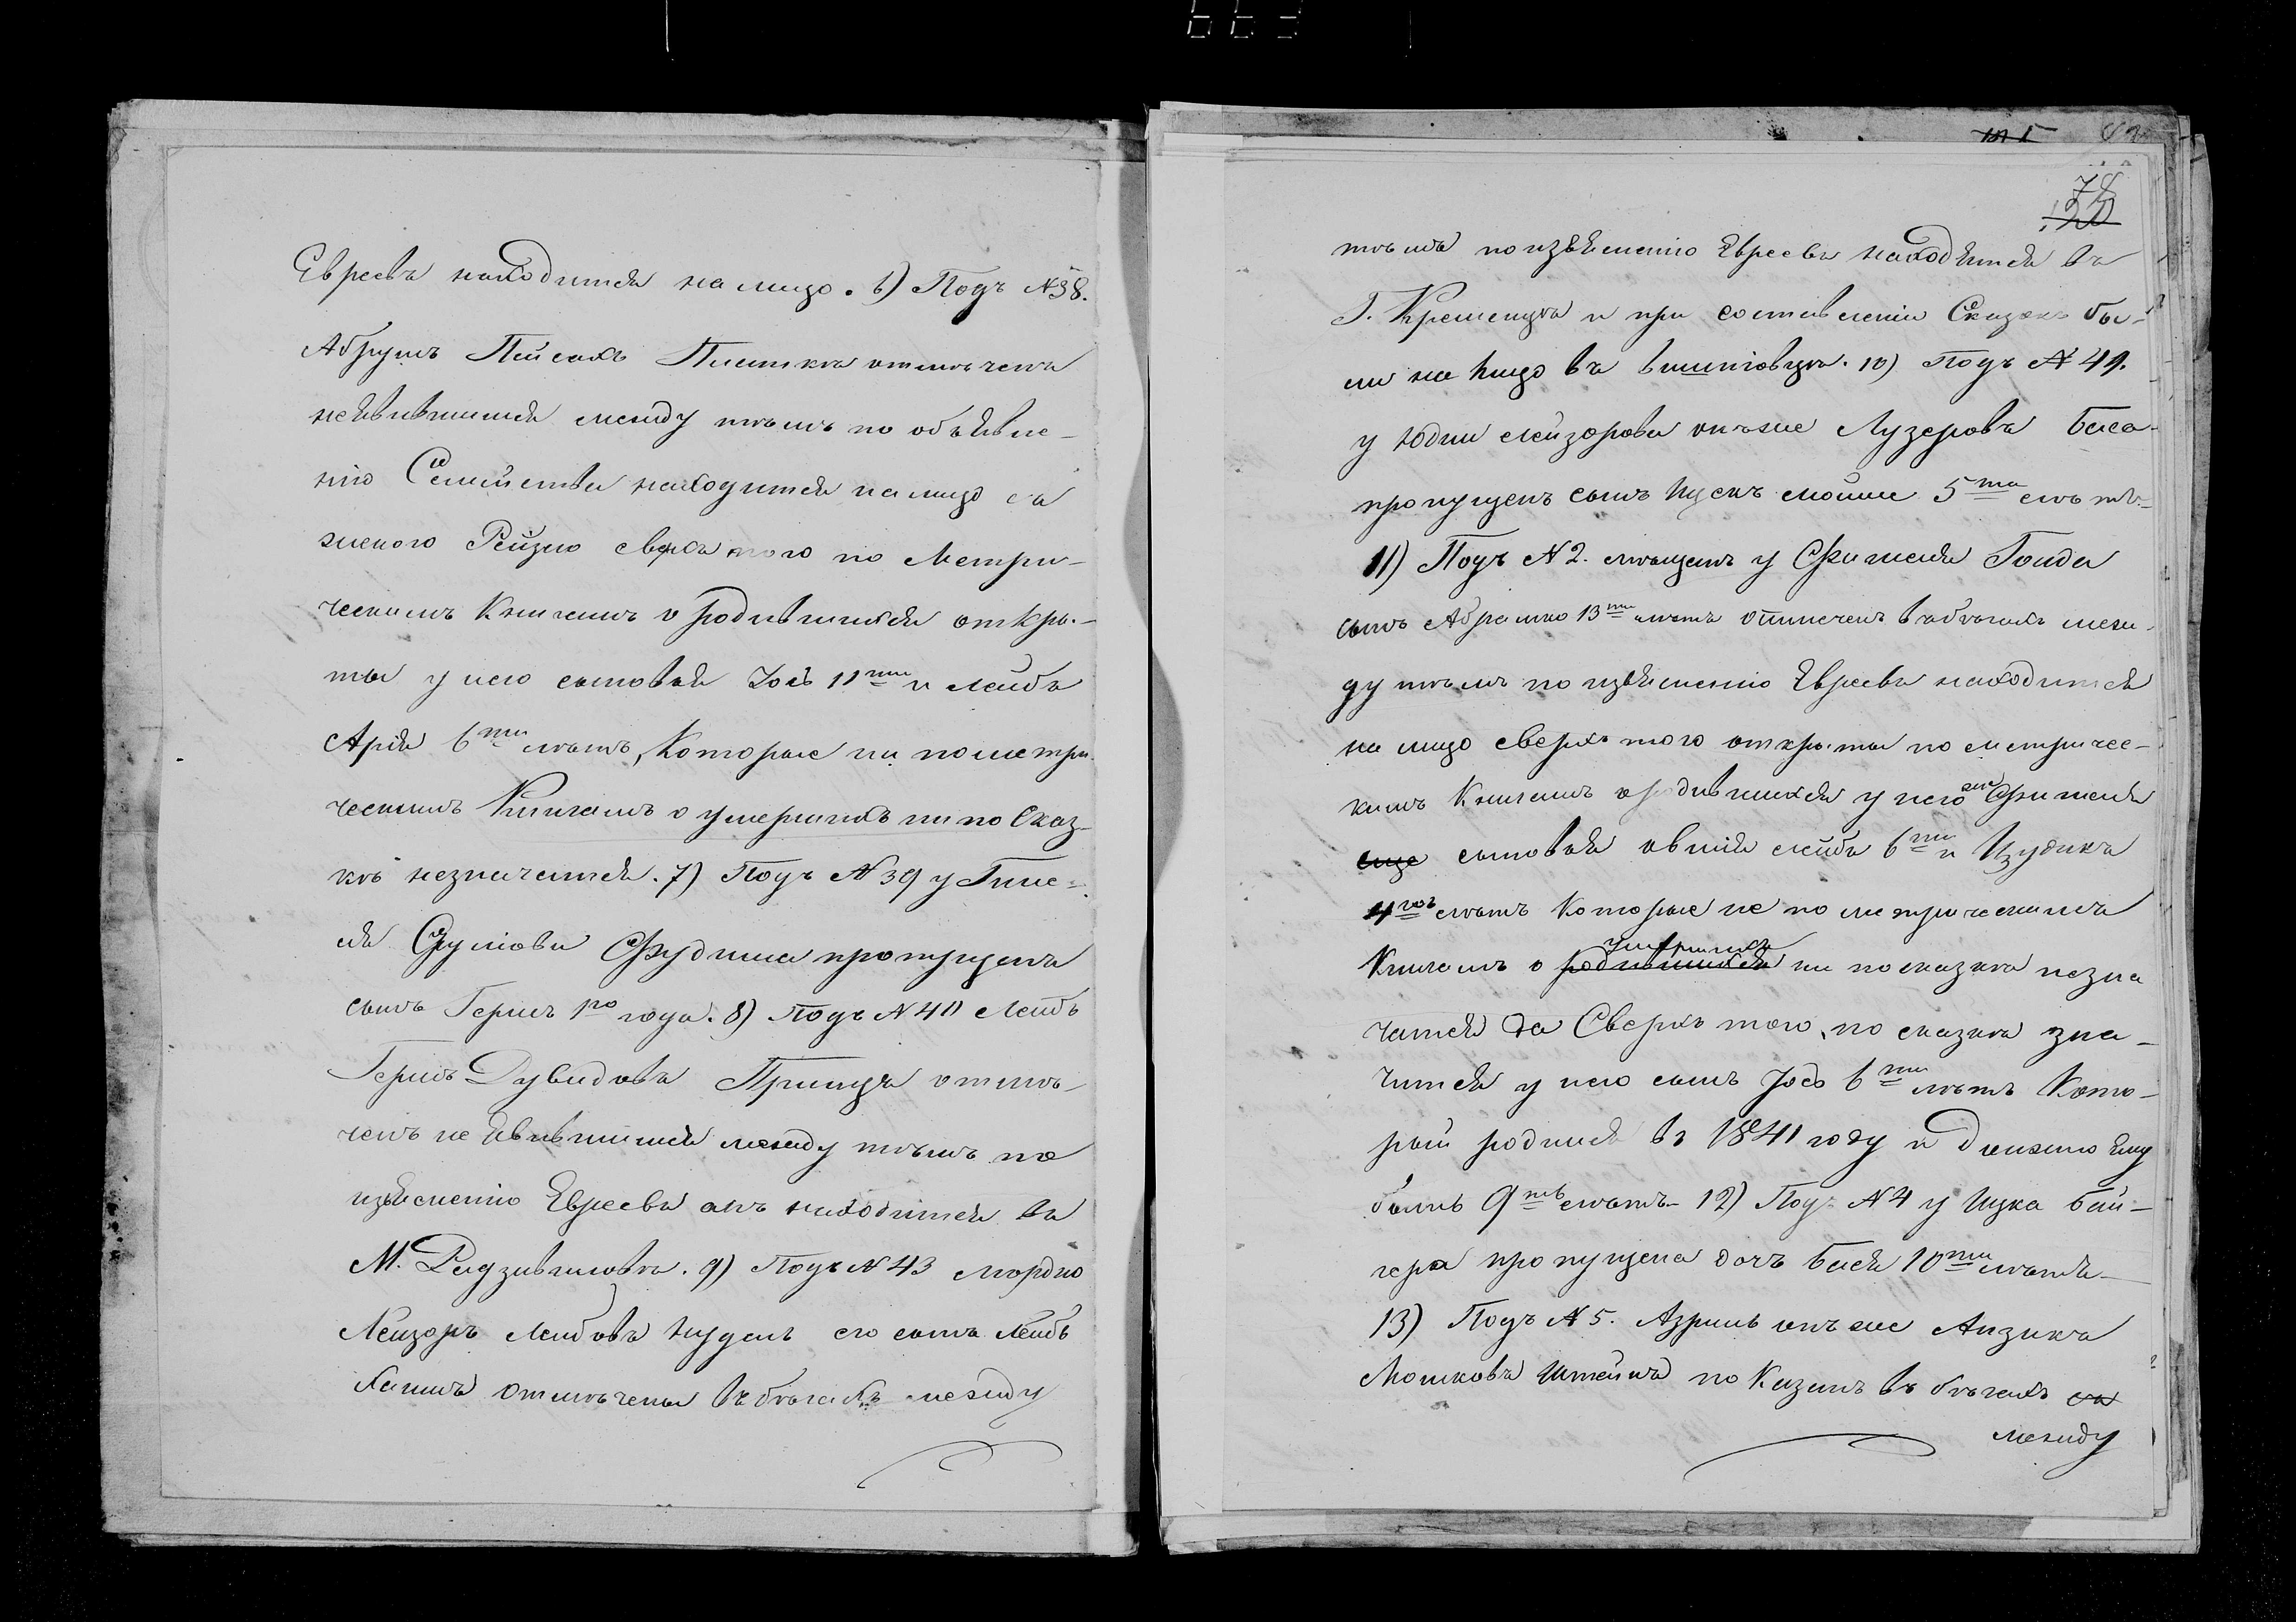 Евреевъ находится на лицо. 6) Подъ №38.
Абрумъ Пейсахъ Писткъ отмѣченъ
неявившимся между тѣмъ по объявле-
нію Семейства находится на лицо съ
женою Рейзею сверхъ того по Метри-
ческимъ Книгамъ о родившихся откры-
ты у него сыновья Іось 11ти и Лейба
Арія 6ти лѣтъ, Которые ни по метри-
ческимъ Книгамъ о умершихъ ни по Сказ-
кѣ незначатся. 7) Подъ №39 у
пропущенъ
сынъ Гершъ 1го года. 8) Подъ №40 Лейбъ
Гершъ Дувидовъ Принцъ отмѣ-
ченъ неявившимся между тѣмъ по
изъясненію Евреевъ онъ находится въ
М. Радзивиловѣ. 9) Подъ №43 Мордко
Лейзоръ Лейбовъ Нудель его сынъ Лейбъ
Хаимъ отмѣчены въ бѣгахъ между
78
тѣмъ по изъясненію Евреевъ находятся въ
Г. Кременцѣ и при составленіи Сказокъ бы-
ли на лицо въ Вишнiовцѣ. 10) Подъ №49.
у Юдки Лейзорова онъ же Лузеровъ
пропущенъ сынъ Ицекъ Мойше 5ти лѣтъ.
11) Подъ №2. мѣщанъ у Фишеля Гольда
сынъ Абрамко 13ти лѣтъ отмѣченъ въ бѣгахъ меж-
ду тѣмъ по изъясненію Евреевъ находится
на лицо сверхъ того открыты по метричес-
кимъ Книгамъ о родившихся у него же Фишеля
еще сыновья Овшія Лейба 6ти и Изудикъ
4хъ лѣтъ Которые не по метрическимъ
Книгамъ о родившихся умершихъ ни по сказкѣ незна
чатся да Сверхъ того, по сказкѣ зна-
чится у него сынъ Іось 6ти лѣтъ Кото-
рый родился въ 1841 году и должно ему
быть 9ть лѣтъ. 12) Подъ №4 у Ицка Бай-
гера пропущена дочь Бася 10ти лѣтъ
13) Подъ №5. Азриль онъ же Айзикъ
Мошковъ Штейнъ показанъ въ бѣгахъ
между